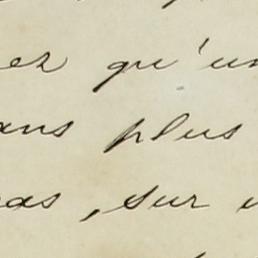 ez qu'un
ans plus
as, sur